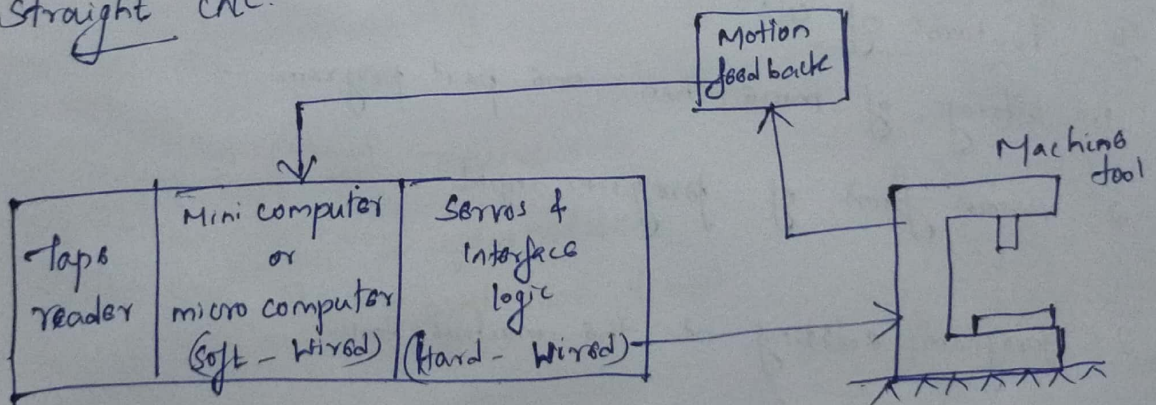 Straight CNC.
Motion
feedback
Machine
tool
Tape
reader
Mini computer
or
micro computer
(Soft - Wired)
Servos &
interface
logic
(Hard - Wired)